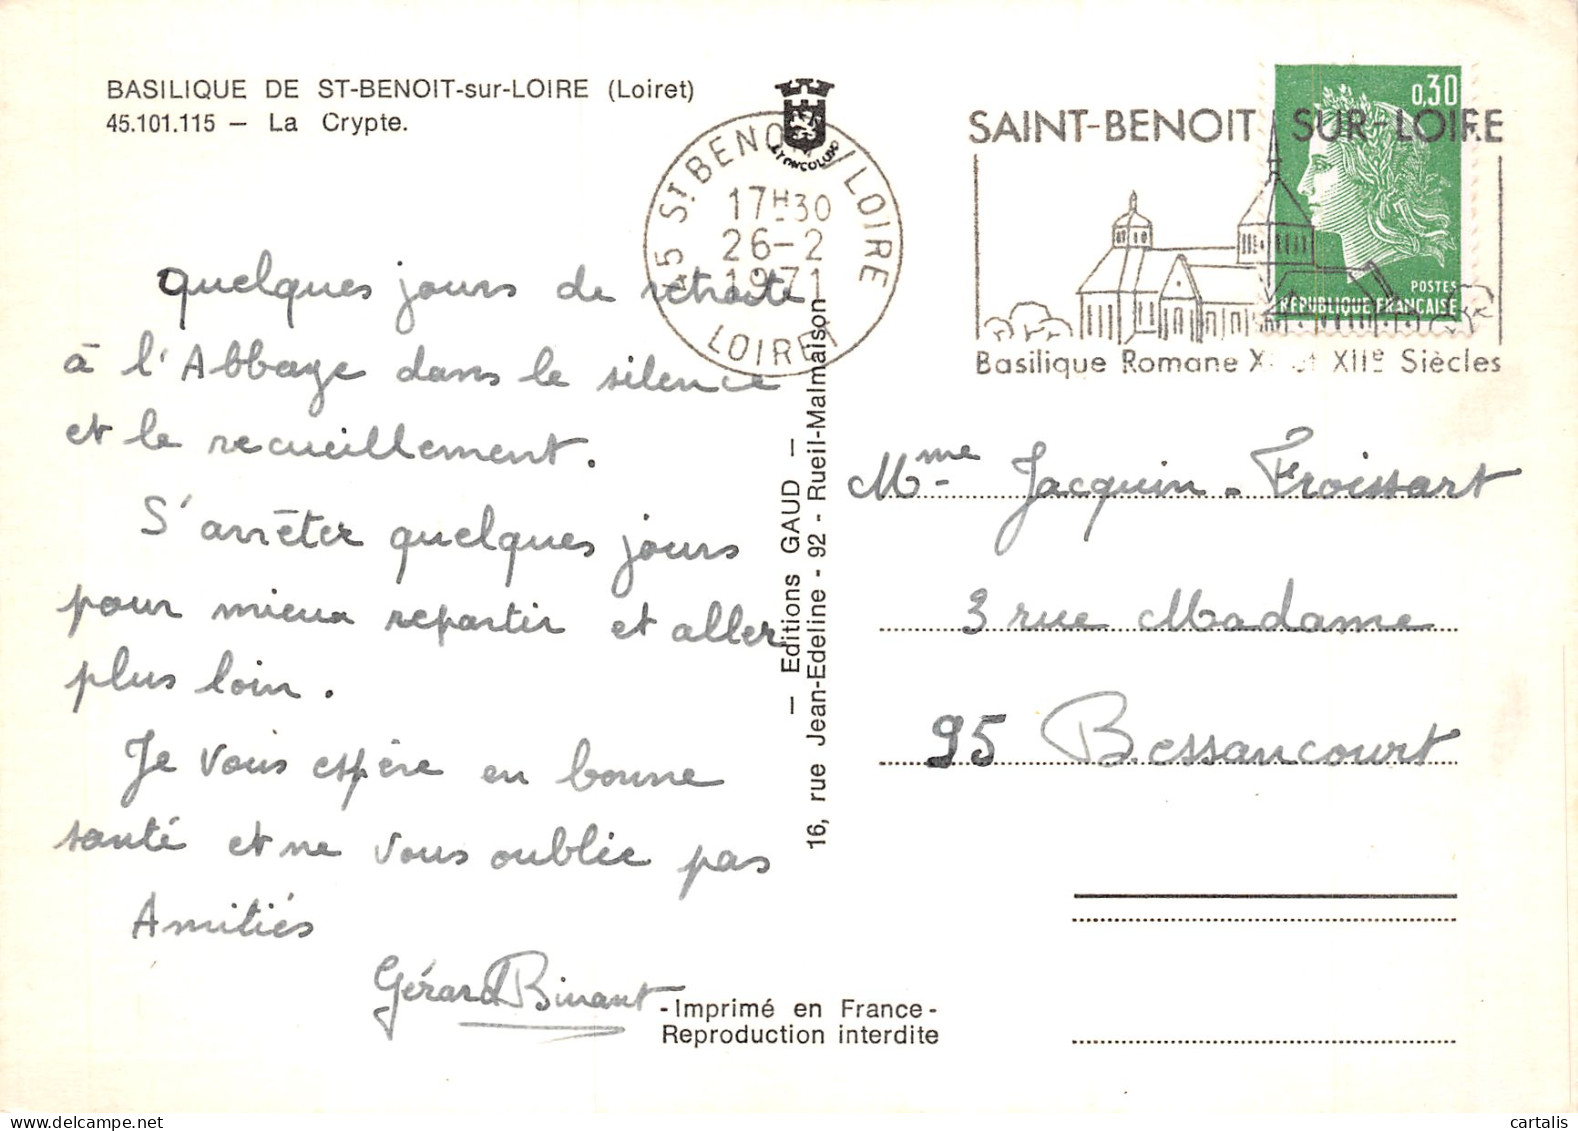 BASILIQUE DE ST-BENOIT-sur-LOIRE (Loiret)
45.101.115 — La Crypte.
45 ST BENOIT S/LOIRE
17H30
26-2
1971
LOIRET
SAINT-BENOIT SUR-LOIRE
Basilique Romane XIe et XIIe Siècles
0,30
POSTES
RÉPUBLIQUE FRANÇAISE
Quelques jours de retraite
à l'Abbaye dans le silence
et le recueillement.
S'arrêter quelques jours
pour mieux repartir et aller
plus loin.
Je vous espère en bonne
santé et ne vous oublie pas
Amitiés
Gérard Binant
— Editions GAUD —
16, rue Jean-Edeline - 92 - Rueil-Malmaison
Mme Jacquin-Froissart
3 rue Madame
95 Bessancourt
-Imprimé en France-
Reproduction interdite
cartalis